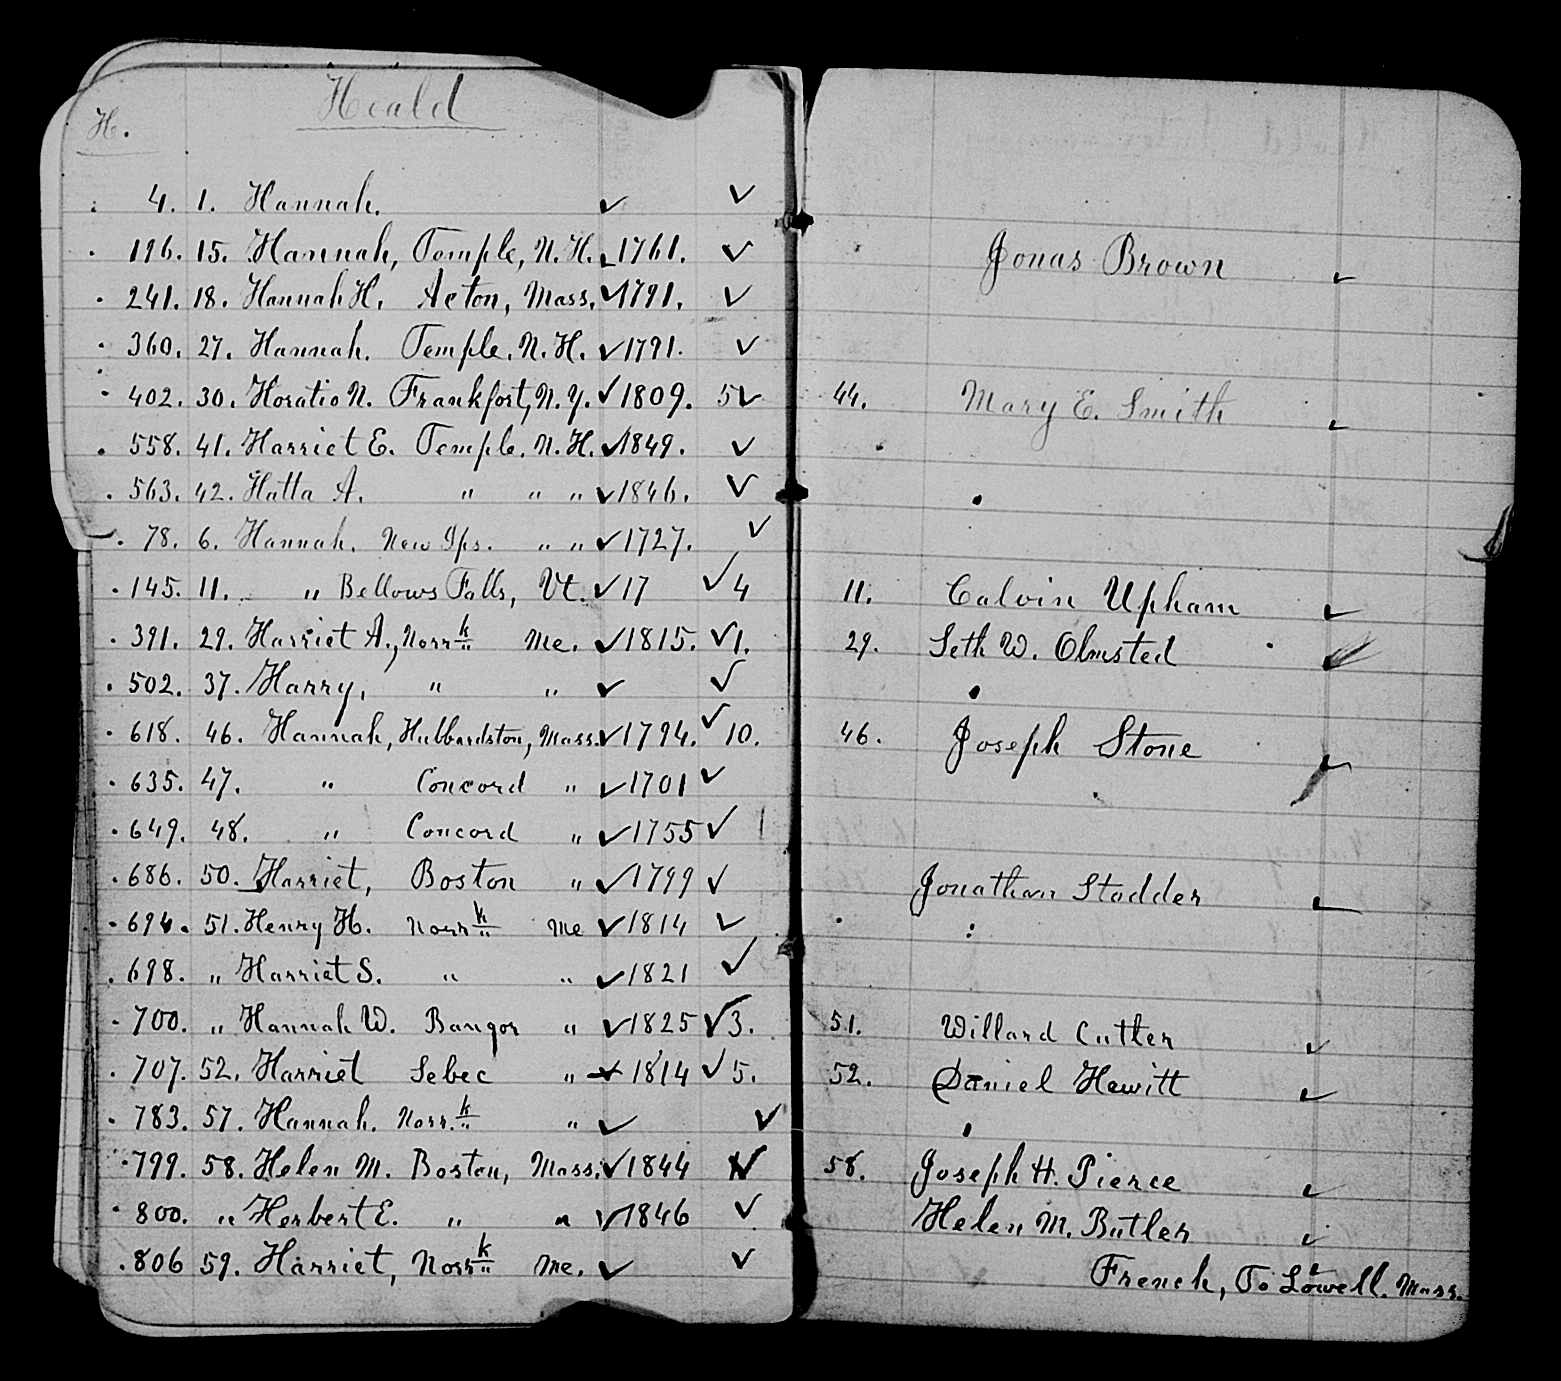 Heald
H.
4. 1. Hannah. ✓ ✓
196. 15. Hannah, Temple, N. H. 1761. ✓ Jonas Brown ✓
241. 18. Hannah H. Acton, Mass. ✓ 1791. ✓
360. 27. Hannah. Temple. N. H. ✓ 1791. ✓
402. 30. Horatio N. Frankfort, N. Y. ✓ 1809. 5 ✓ 44. Mary E. Smith ✓
558. 41. Harriet E. Temple. N. H. ✓ 1849. ✓
563. 42. Hatta A. " " " ✓ 1846. ✓
78. 6. Hannah. New Ips. " " ✓ 1727. ✓
145. 11. " Bellows Falls, Vt. ✓ 17 ✓ 4 11. Calvin Upham ✓
391. 29. Harriet A., Norrk Me. ✓ 1815. ✓ 1. 29. Seth W. Olmsted ✓
502. 37. Harry, " " ✓ ✓
618. 46. Hannah, Hubbardston, Mass. ✓ 1794. ✓ 10. 46. Joseph Stone ✓
635. 47. " Concord " ✓ 1701 ✓
649. 48. " Concord " ✓ 1755 ✓
686. 50. Harriet, Boston " ✓ 1799 ✓ Jonathan Stodder ✓
694. 51. Henry H. Norrk Me ✓ 1814 ✓
698. " Harriet S. " " ✓ 1821 ✓
700. " Hannah W. Bangor " ✓ 1825 ✓ 3. 51. Willard Cutler ✓
707. 52. Harriet Sebec " ✓ 1814 ✓ 5. 52. Daniel Hewitt ✓
783. 57. Hannah. Norrk " ✓ ✓
799. 58. Helen M. Boston, Mass. ✓ 1844 ✓ 58. Joseph H. Pierce ✓
800. " Herbert E. " " ✓ 1846 ✓ Helen M. Butler ✓
806 59. Harriet, Norrk Me. ✓ ✓ French, To Lowell. Mass.